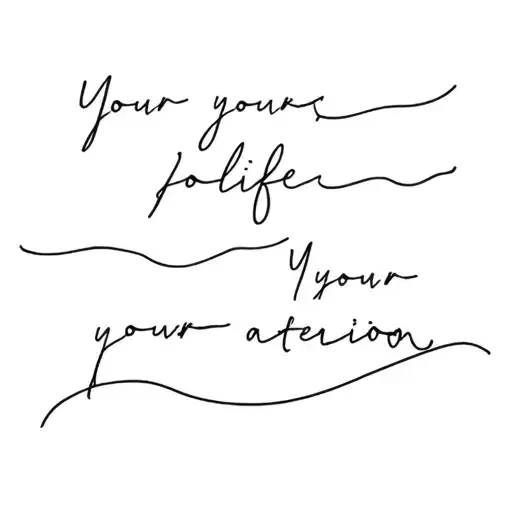 Your yours
folifer
Yyour
your aterion